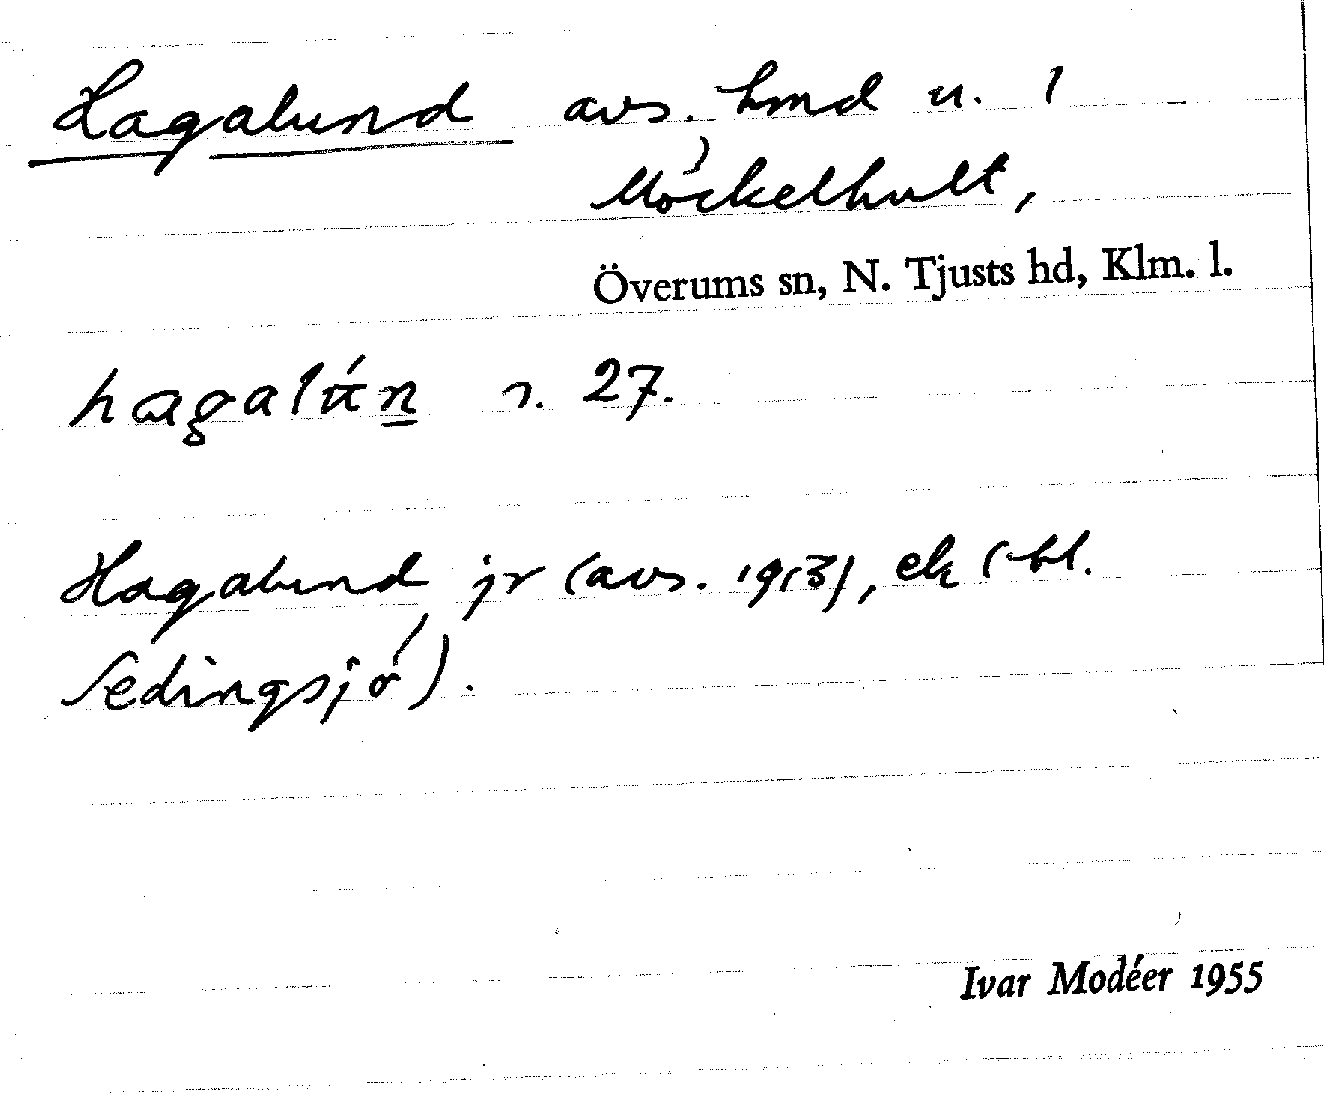 Hagalund avs. hmd u. 1
Möckelhult,
Överums sn, N. Tjusts hd, Klm. l.
hagalún s. 27.
Hagalund jr (avs. 1913), ek (-bl.
Sedingsjö).
Ivar Modéer 1955